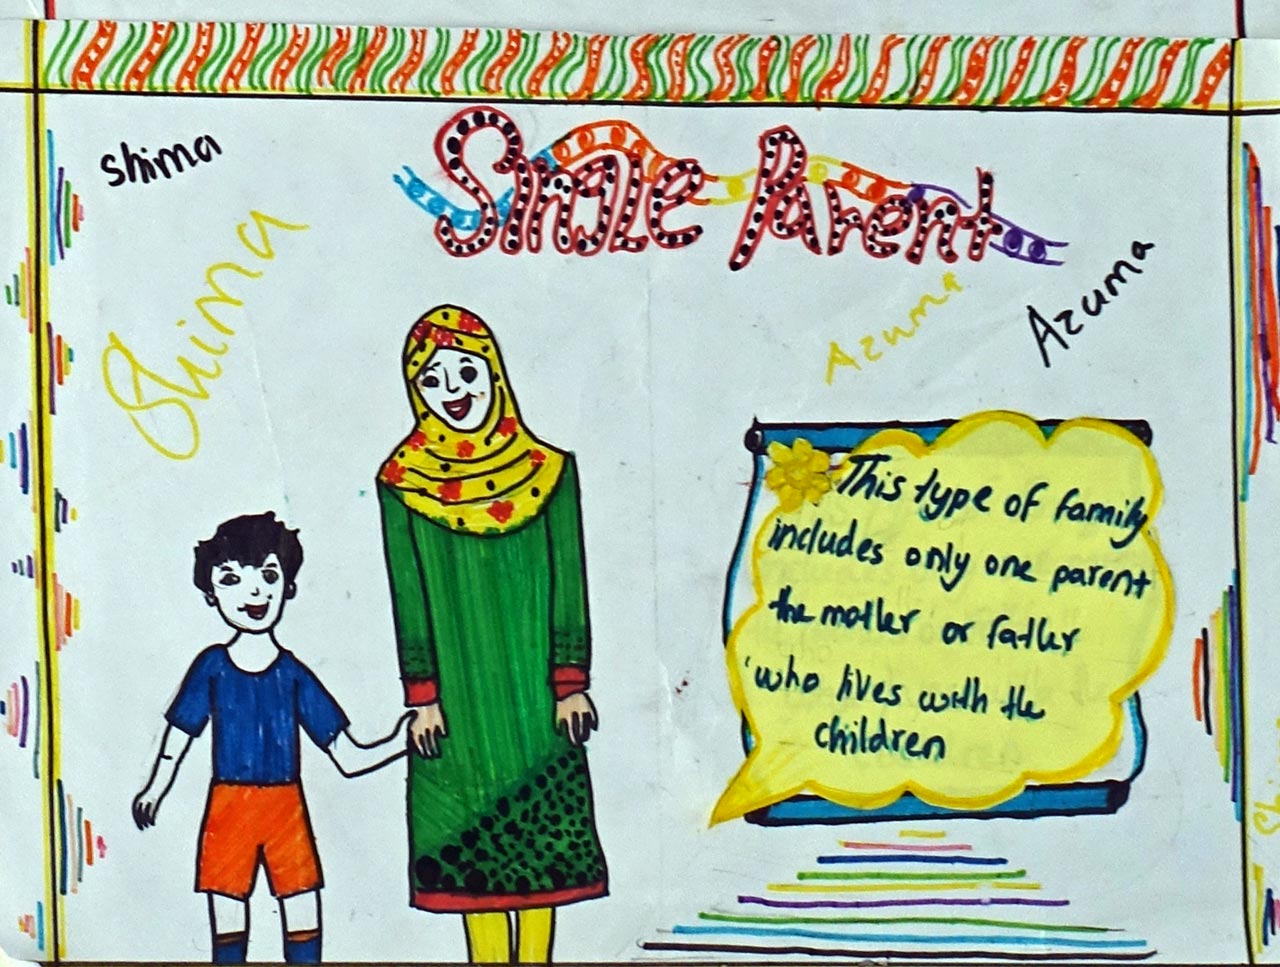 Single Parent
shima
Shima
Azuma
Azuma
This type of family
includes only one parent
the mother or father
who lives with the
children